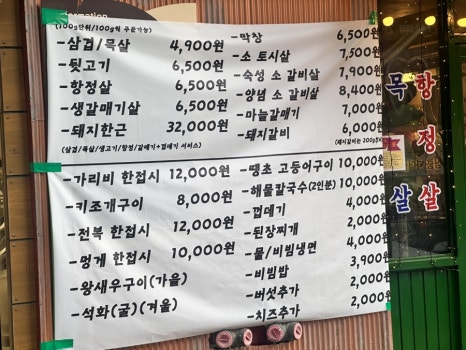 formation
(100g단위/100g씩 주문가능)
-삼겹/목살 4,900원
-뒷고기 6,500원
-항정살 6,500원
-생갈매기살 6,500원
-돼지한근 32,000원
-막창 6,500원
-소 토시살 7,500원
-숙성 소 갈비살 7,900원
-양념 소 갈비살 8,400
-마늘갈매기 7,000
-돼지갈비 6,000원
-가리비 한접시 12,000원
-키조개구이 8,000원
-전복 한접시 12,000원
-멍게 한접시 10,000원
-왕새우구이(가을)
-석화(굴)(겨울)
-땡초 고등어구이 10,000원
-해물칼국수(2인분) 10,000원
-껍데기 4,000원
-된장찌개 2,000원
-물/비빔냉면 4,000원
-비빔밥 3,900원
-버섯추가 2,000원
-치즈추가 2,000원
항정살
목살